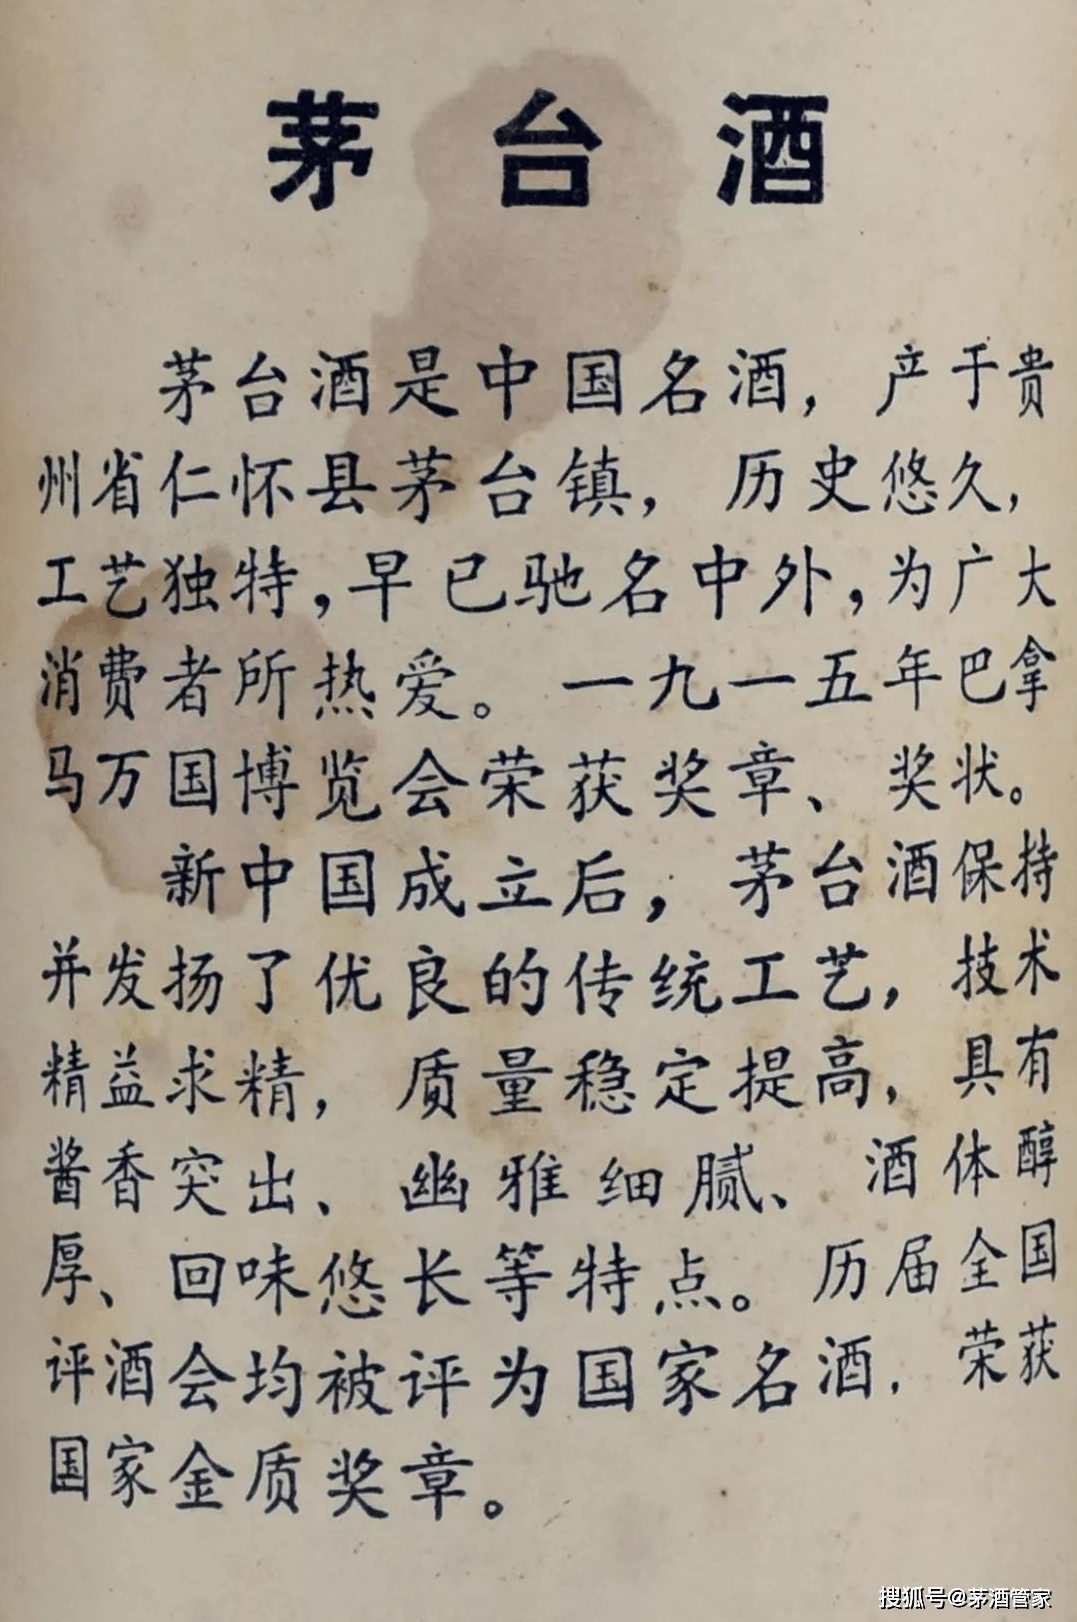 茅台酒
茅台酒是中国名酒，产于贵
州省仁怀县茅台镇，历史悠久，
工艺独特，早已驰名中外，为广大
消费者所热爱。一九一五年巴拿
马万国博览会荣获奖章、奖状。
新中国成立后，茅台酒保持
并发扬了优良的传统工艺，技术
精益求精，质量稳定提高，具有
酱香突出、幽雅细腻、酒体醇
厚、回味悠长等特点。历届全国
评酒会均被评为国家名酒，荣获
国家金质奖章。
搜狐号@茅酒管家